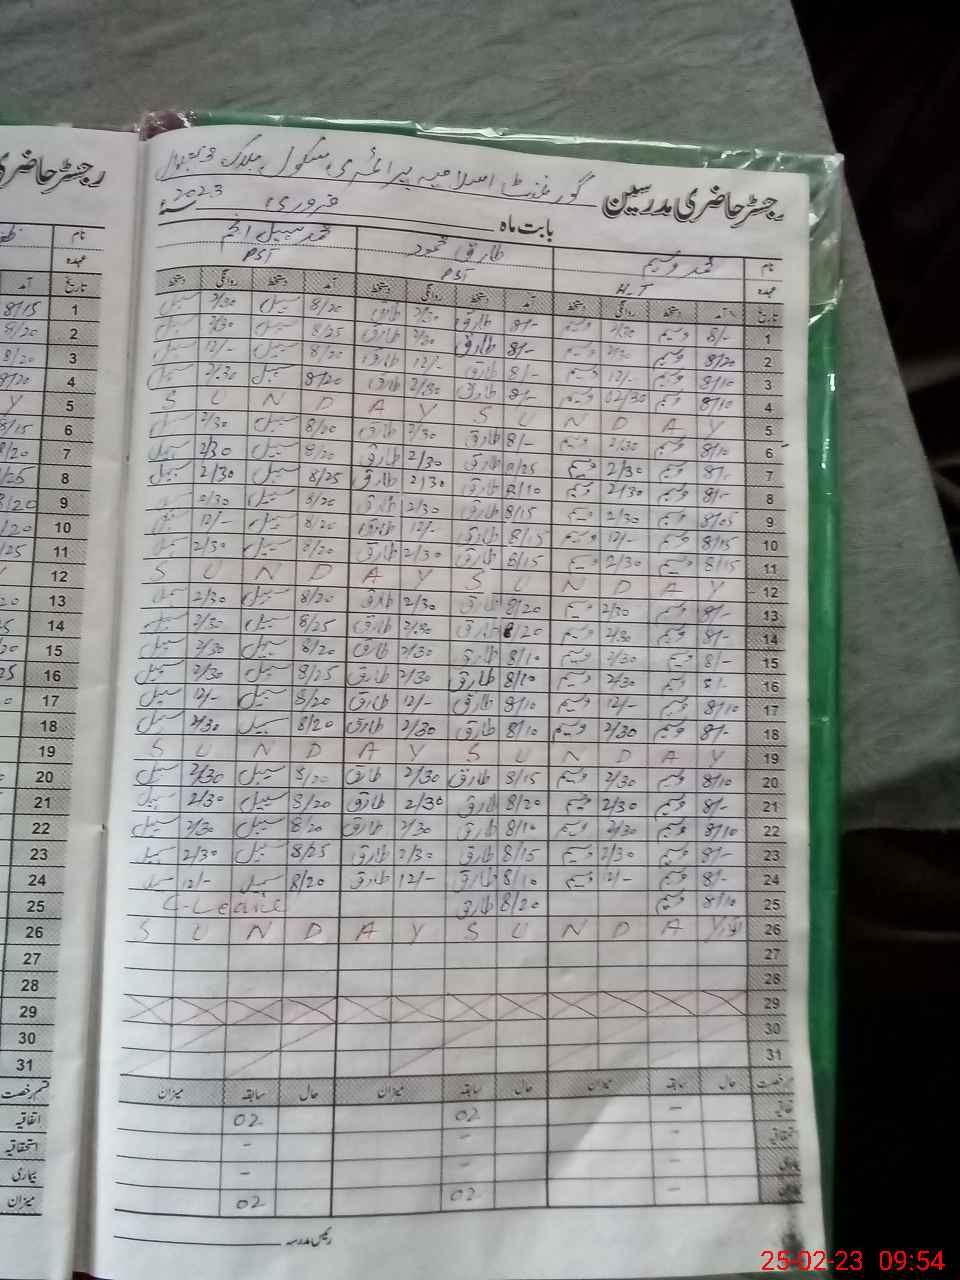 رجسٹر حاضری مدرسین گورنمنٹ اسلامیہ پرائمری سکول بلاک 3
بابت ماہ فروری 2023
نام محمد وسیم طارق محمود محمد سہیل انجم
عہدہ H.T PST PST
تاریخ آمد دستخط روانگی دستخط آمد دستخط روانگی دستخط آمد دستخط روانگی دستخط
1 8/- وسیم 2/30 وسیم 8/- طارق 2/30 طارق 8/20 سہیل 2/30 سہیل
2 8/20 وسیم 2/30 وسیم 8/- طارق 2/30 طارق 8/25 سہیل 2/30 سہیل
3 8/10 وسیم 12/- وسیم 8/- طارق 12/- طارق 8/20 سہیل 12/- سہیل
4 8/10 وسیم 02/30 وسیم 8/- طارق 2/30 طارق 8/20 سہیل 2/30 سہیل
5 S U N D A Y S U N D A Y
6 8/10 وسیم 2/30 وسیم 8/- طارق 2/30 طارق 8/20 سہیل 2/30 سہیل
7 8/- وسیم 2/30 وسیم 8/25 طارق 2/30 طارق 8/20 سہیل 2/30 سہیل
8 8/- وسیم 2/30 وسیم 8/10 طارق 2/30 طارق 8/25 سہیل 2/30 سہیل
9 8/05 وسیم 2/30 وسیم 8/15 طارق 2/30 طارق 8/20 سہیل 2/30 سہیل
10 8/15 وسیم 12/- وسیم 8/15 طارق 12/- طارق 8/20 سہیل 12/- سہیل
11 8/15 وسیم 2/30 وسیم 8/15 طارق 2/30 طارق 8/20 سہیل 2/30 سہیل
12 S U N D A Y S U N D A Y
13 8/- وسیم 2/30 وسیم 8/20 طارق 2/30 طارق 8/20 سہیل 2/30 سہیل
14 8/- وسیم 2/30 وسیم 8/20 طارق 2/30 طارق 8/25 سہیل 2/30 سہیل
15 8/- وسیم 2/30 وسیم 8/10 طارق 2/30 طارق 8/20 سہیل 2/30 سہیل
16 8/- وسیم 2/30 وسیم 8/10 طارق 2/30 طارق 8/25 سہیل 2/30 سہیل
17 8/10 وسیم 12/- وسیم 8/10 طارق 12/- طارق 8/20 سہیل 12/- سہیل
18 8/- وسیم 2/30 وسیم 8/10 طارق 2/30 طارق 8/20 سہیل 2/30 سہیل
19 S U N D A Y S U N D A Y
20 8/10 وسیم 2/30 وسیم 8/15 طارق 2/30 طارق 8/20 سہیل 2/30 سہیل
21 8/- وسیم 2/30 وسیم 8/20 طارق 2/30 طارق 8/20 سہیل 2/30 سہیل
22 8/10 وسیم 2/30 وسیم 8/10 طارق 2/30 طارق 8/20 سہیل 2/30 سہیل
23 8/- وسیم 2/30 وسیم 8/15 طارق 2/30 طارق 8/25 سہیل 2/30 سہیل
24 8/- وسیم 12/- وسیم 8/10 طارق 12/- طارق 8/20 سہیل 12/- سہیل
25 8/10 وسیم 8/20 طارق C-Leave
26 S U N D A Y S U N D A Y
27
28
29
30
31
قسم رخصت حال سابقہ میزان حال سابقہ میزان حال سابقہ میزان
اتفاقیہ - 02 02
استحقاقیہ - - -
بیماری - - -
میزان - 02 02
رئیس مدرسہ
رجسٹر حاضری
نام
عہدہ
تاریخ آمد
1 8/15
2 8/20
3 8/20
4 8/20
5 Y
6 8/15
7 8/20
8 8/25
9 8/20
10
11
12
13
14
15
16
17
18
19
20
21
22
23
24
25
26
27
28
29
30
31
قسم رخصت
اتفاقیہ
استحقاقیہ
بیماری
میزان
25-02-23 09:54